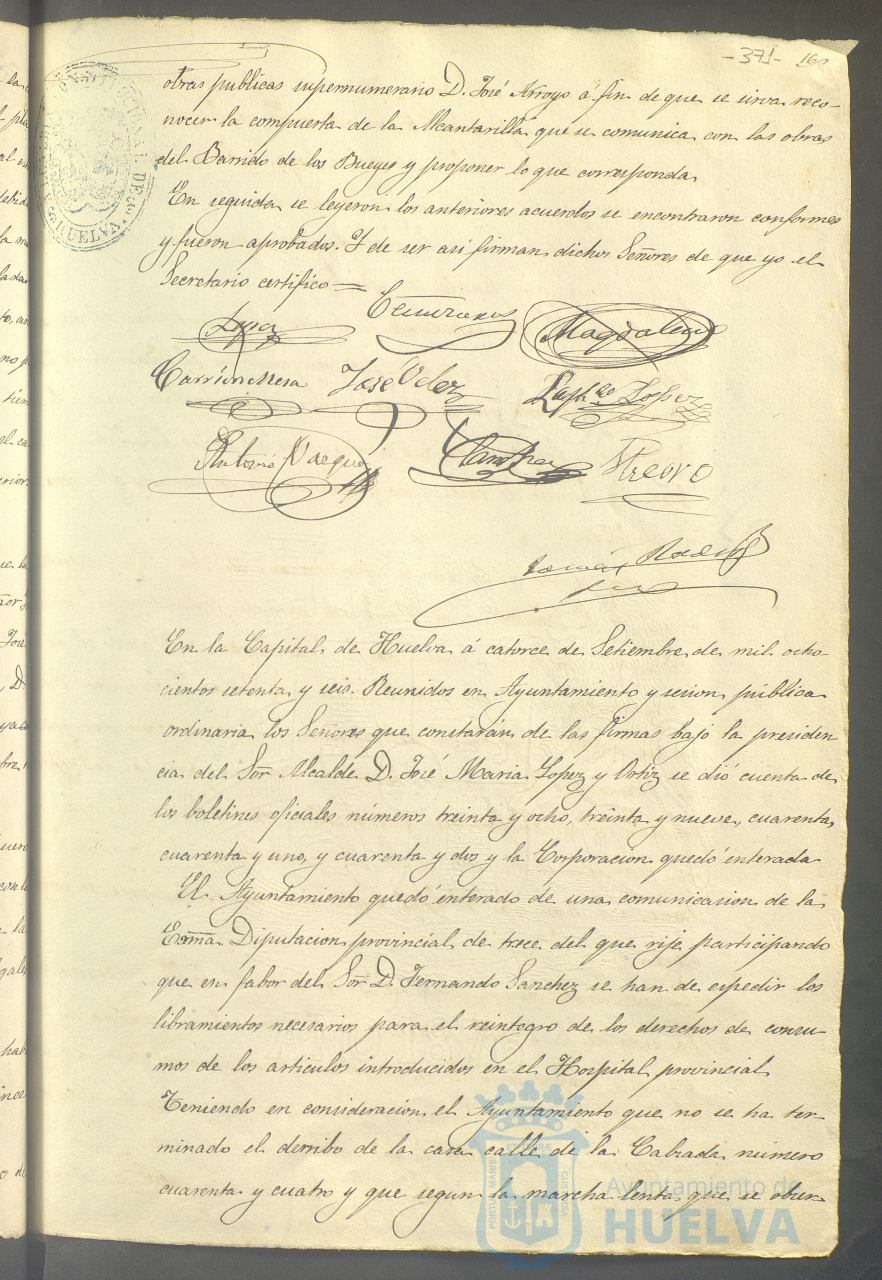 -371- 161
obras publicas supernumerario D. José Arroyo á fin de que se sirva reco-
nocer la compuerta de la Alcantarilla que se comunica con las obras
del Barrido de los Bueyes y proponer lo que corresponda
En seguida se leyeron los anteriores acuerdos se encontraron conformes
y fueron aprobados. Y de ser asi firman dichos Señores de que yo el
Secretario certifico =
Lopez Magdaleno
Carrion Mesa José Velez Lopez
Antonio Vazquez
En la Capital de Huelva á catorce de Setiembre de mil ocho-
cientos setenta y seis. Reunidos en Ayuntamiento y sesion pública
ordinaria los Señores que constarán de las firmas bajo la presiden
cia del Sor Alcalde D. José Maria Lopez y Ortiz se dió cuenta de
los boletines oficiales números treinta y ocho, treinta y nueve, cuarenta,
cuarenta y uno, y cuarenta y dos y la Corporacion quedó enterada
El Ayuntamiento quedó enterado de una comunicasion de la
Exma Diputacion provincial de trece del que rije participando
que en fabor del Sor D. Fernando Sanchez se han de espedir los
libramientos necesarios para el reintegro de los derechos de consu-
mos de los articulos introducidos en el Hospital provincial
Teniendo en consideracion el Ayuntamiento que no se ha ter-
minado el derribo de la casa calle de la Calzada número
cuarenta y cuatro y que segun la marcha lenta que se obser-
CONSTITUCIONAL DE HUELVA
PORTUS MARIS ET TERRE CUSTODIA
Ayuntamiento de
HUELVA